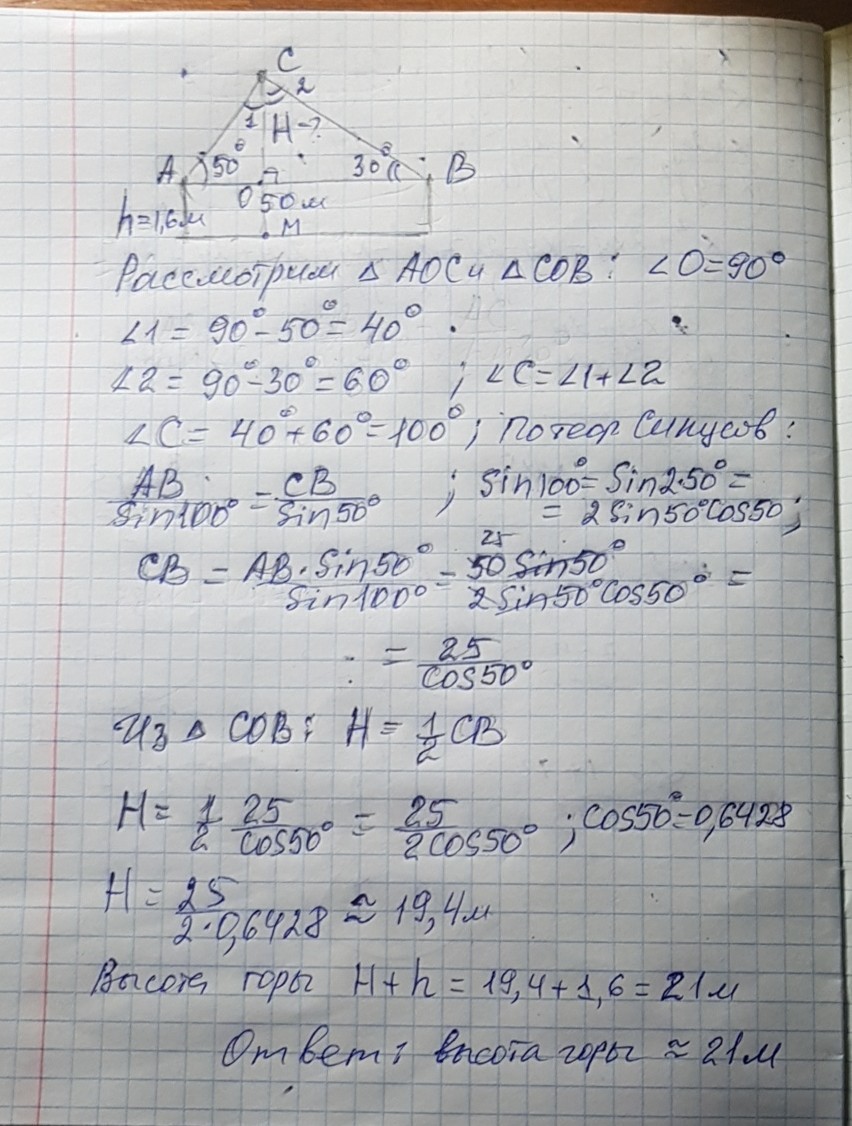 C
1 2
H-?
A 50° 30° B
O 50м
h=1,6м
M
Рассмотрим Δ AOC и Δ COB: ∠O=90°
∠1 = 90°-50°= 40°
∠2 = 90°-30°=60° ; ∠C=∠1+∠2
∠C= 40°+60°=100°; По теор Синусов:
AB/Sin100° = CB/Sin50° ; Sin100°= Sin2·50°=
= 2Sin50°Cos50;
CB = AB·Sin50°/Sin100° = 50 Sin50°/2Sin50°Cos50° =
25
= 25/Cos50°
Из Δ COB: H= 1/2 CB
H= 1/2 25/Cos50° = 25/2Cos50° ; Cos50°=0,6428
H= 25/2·0,6428 ≈ 19,4м
Высота горы H+h = 19,4+1,6=21м
Ответ: высота горы ≈ 21м